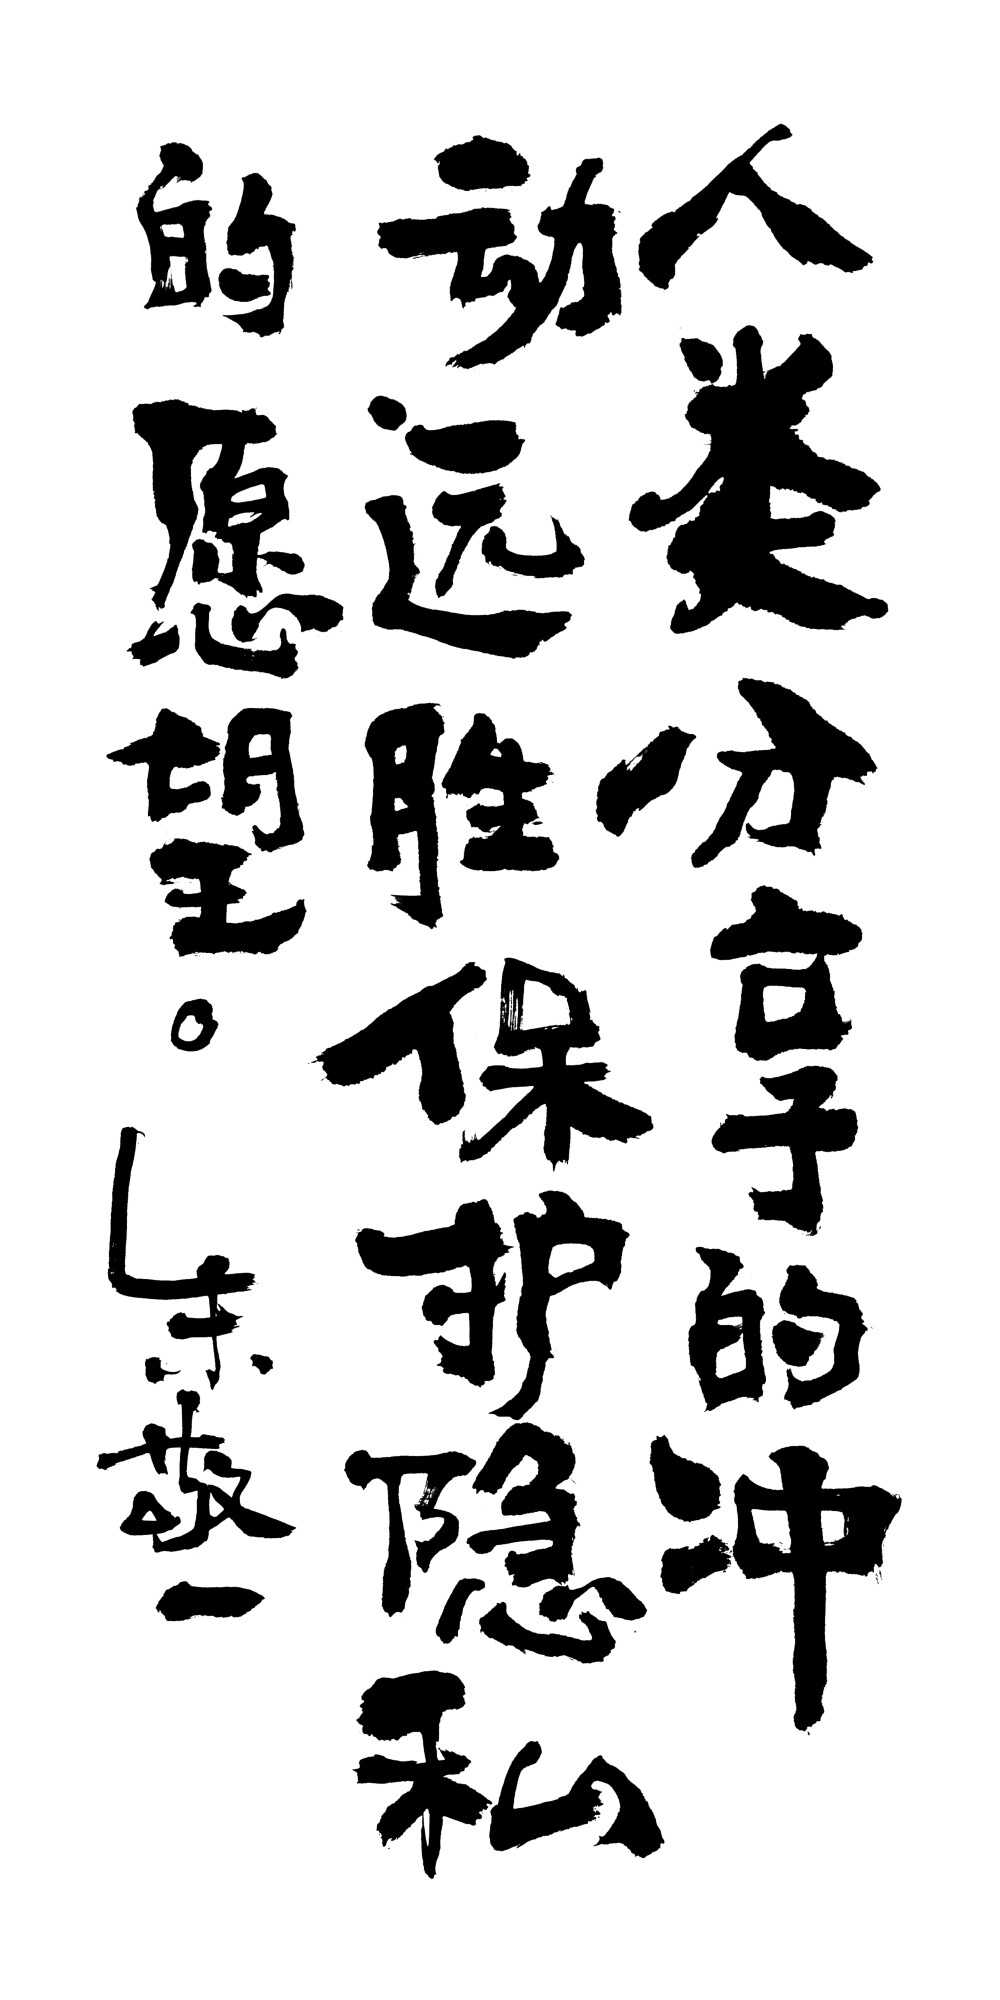 人类分享的冲
动远胜保护隐私
的愿望。朱敬一